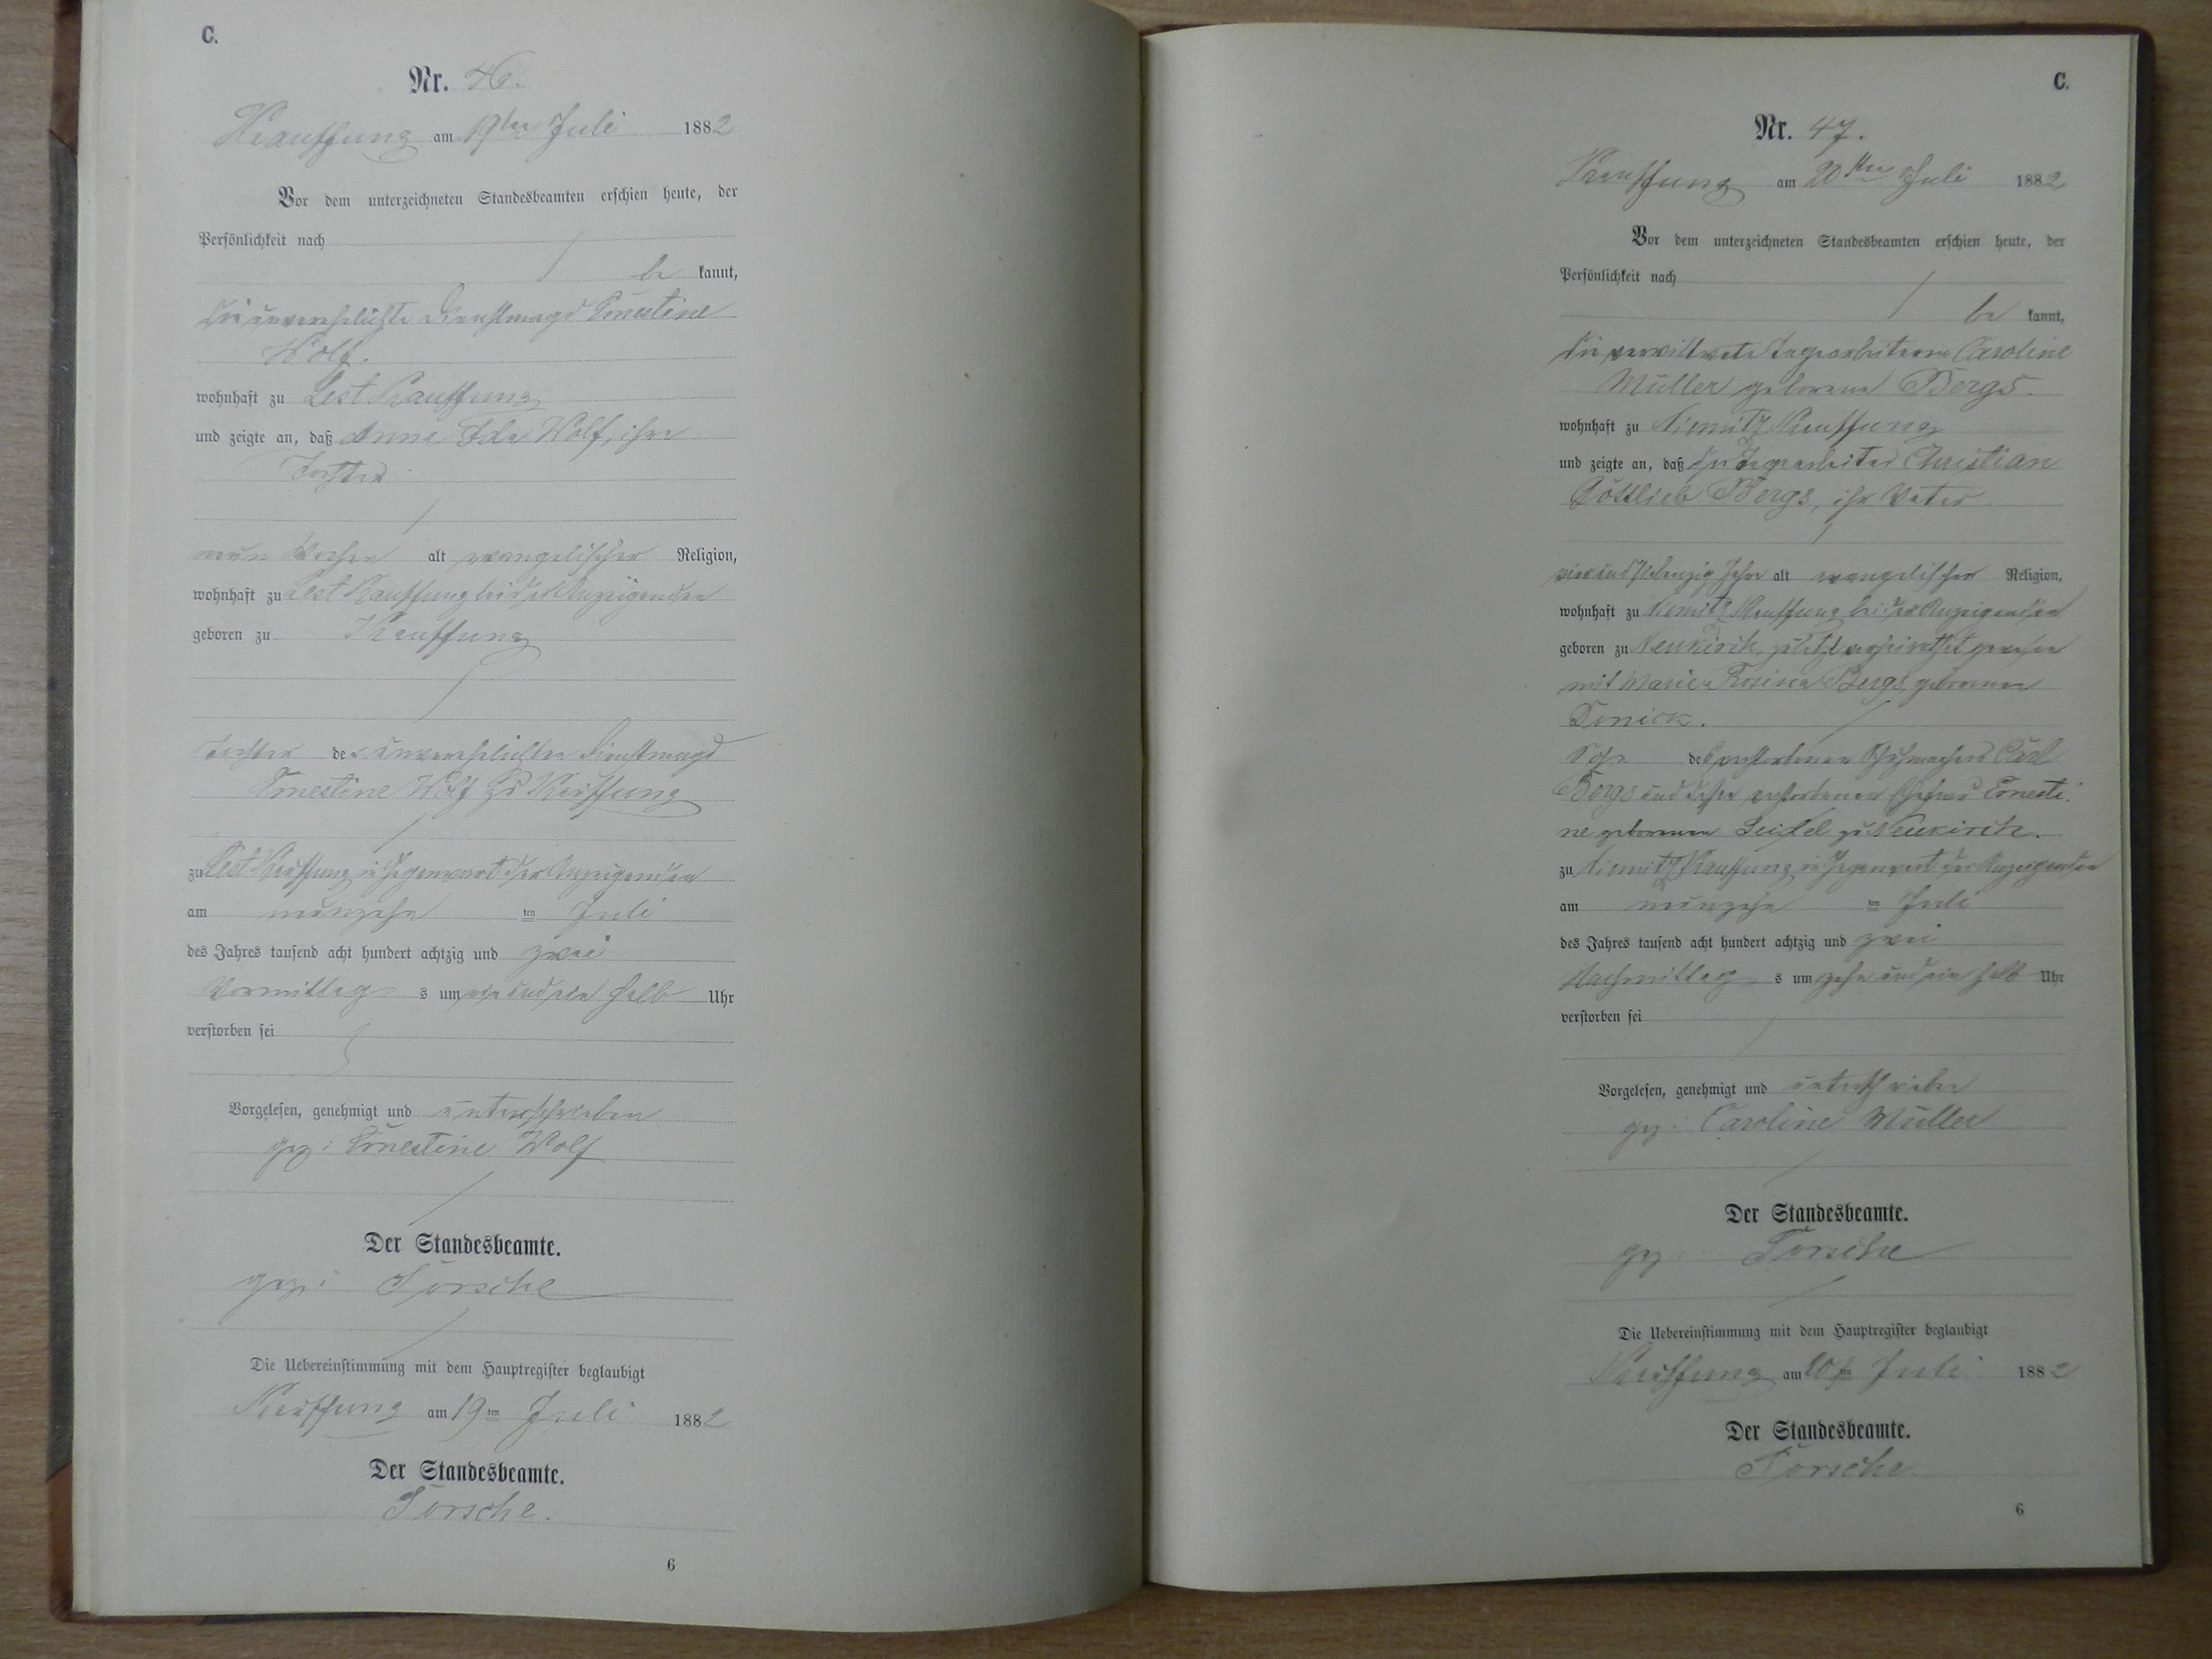 C.
Nr. 46.
Kauffung am 19ten Juli 1882
Vor dem unterzeichneten Standesbeamten erschien heute, der
Persönlichkeit nach
be kannt,
die unverehelichte Dienstmagd Ernestine
Wolf.
wohnhaft zu Lest Kauffung
und zeigte an, daß Anna Ida Wolf, ihre
Tochter
neun Wochen alt evangelischer Religion,
wohnhaft zu Lest Kauffung bei der Anzeigenden
geboren zu Kauffung
Tochter der unverehelichten Dienstmagd
Ernestine Wolf zu Kauffung
zu Lest Kauffung in Gegenwart der Anzeigenden
am neunzehn ten Juli
des Jahres tausend acht hundert achtzig und zwei
Vormittag s um ein und ein halb Uhr
verstorben sei
Vorgelesen, genehmigt und unterschrieben
gez: Ernestine Wolf
Der Standesbeamte.
gez: Torsche
Die Uebereinstimmung mit dem Hauptregister beglaubigt
Kauffung am 19ten Juli 1882
Der Standesbeamte.
Torsche.
6
C.
Nr. 47.
Kauffung am 20ten Juli 1882
Vor dem unterzeichneten Standesbeamten erschien heute, der
Persönlichkeit nach
be kannt,
die verwittwete Tagearbeiterin Caroline
Müller geborene Bergs.
wohnhaft zu Niemitz Kauffung
und zeigte an, daß der Tagearbeiter Christian
Gottlieb Bergs, ihr Vater
vier und siebenzig Jahre alt evangelischer Religion,
wohnhaft zu Niemitz Kauffung bei der Anzeigenden
geboren zu Neukirch, zuletzt verheirathet gewesen
mit Maria Rosina Bergs, geborenen
Sohn des verstorbenen Schuhmachers Carl
Bergs und dessen verstorbenen Ehefrau Ernesti-
ne geborenen Seidel zu Neukirch.
zu Niemitz Kauffung in Gegenwart der Anzeigenden
am neunzehn ten Juli
des Jahres tausend acht hundert achtzig und zwei
Nachmittag s um zehn und ein halb Uhr
verstorben sei
Vorgelesen, genehmigt und unterschrieben
gez: Caroline Müller
Der Standesbeamte.
gez: Torsche
Die Uebereinstimmung mit dem Hauptregister beglaubigt
Kauffung am 20ten Juli 1882
Der Standesbeamte.
Torsche.
6